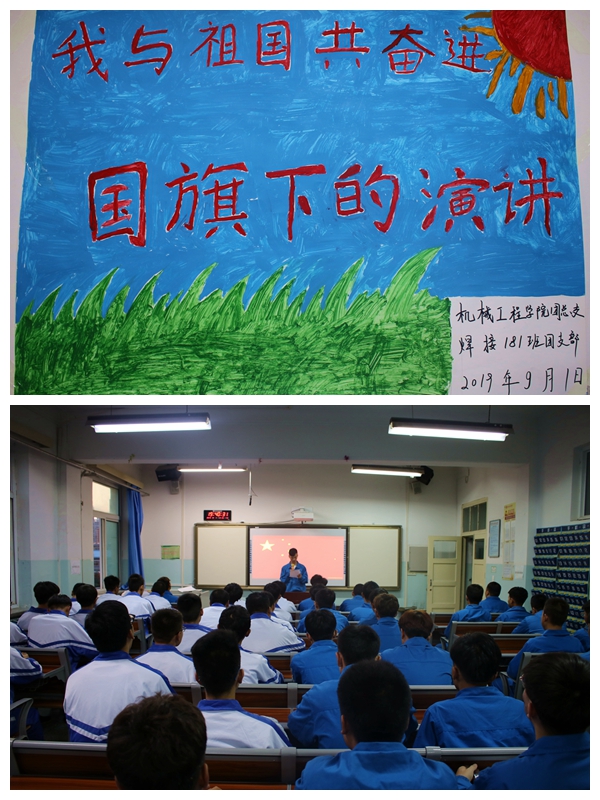 我与祖国共奋进
国旗下的演讲
机械工程学院团总支
焊接181班团支部
2019年9月1日